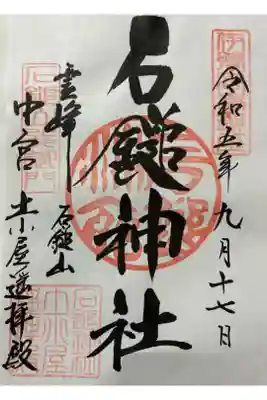 令和五年九月十七日
石鎚神社
霊峰 石鎚山
中宮 土小屋遥拝殿